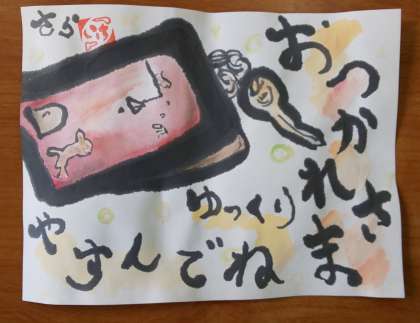 おつかれさま
ゆっくり
やすんでね
さら